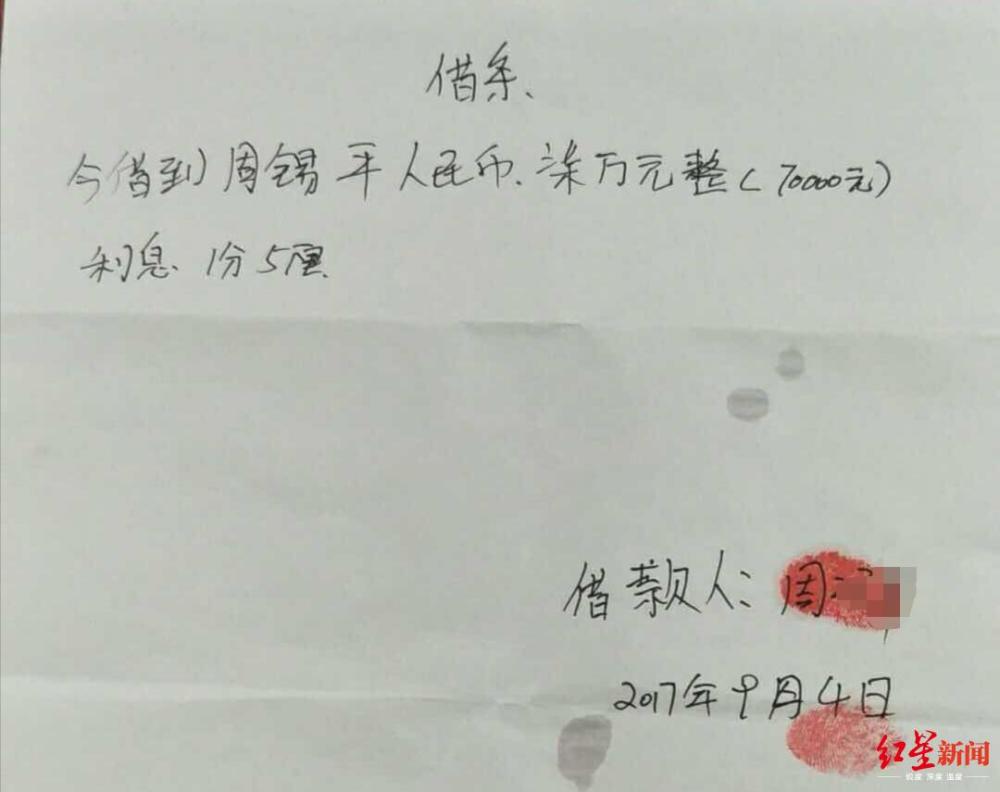 借条、
今借到周锡平人民币、柒万元整(70000元)
利息 1分5厘
借款人:周
2017年9月4日
红星新闻
锐度 深度 温度